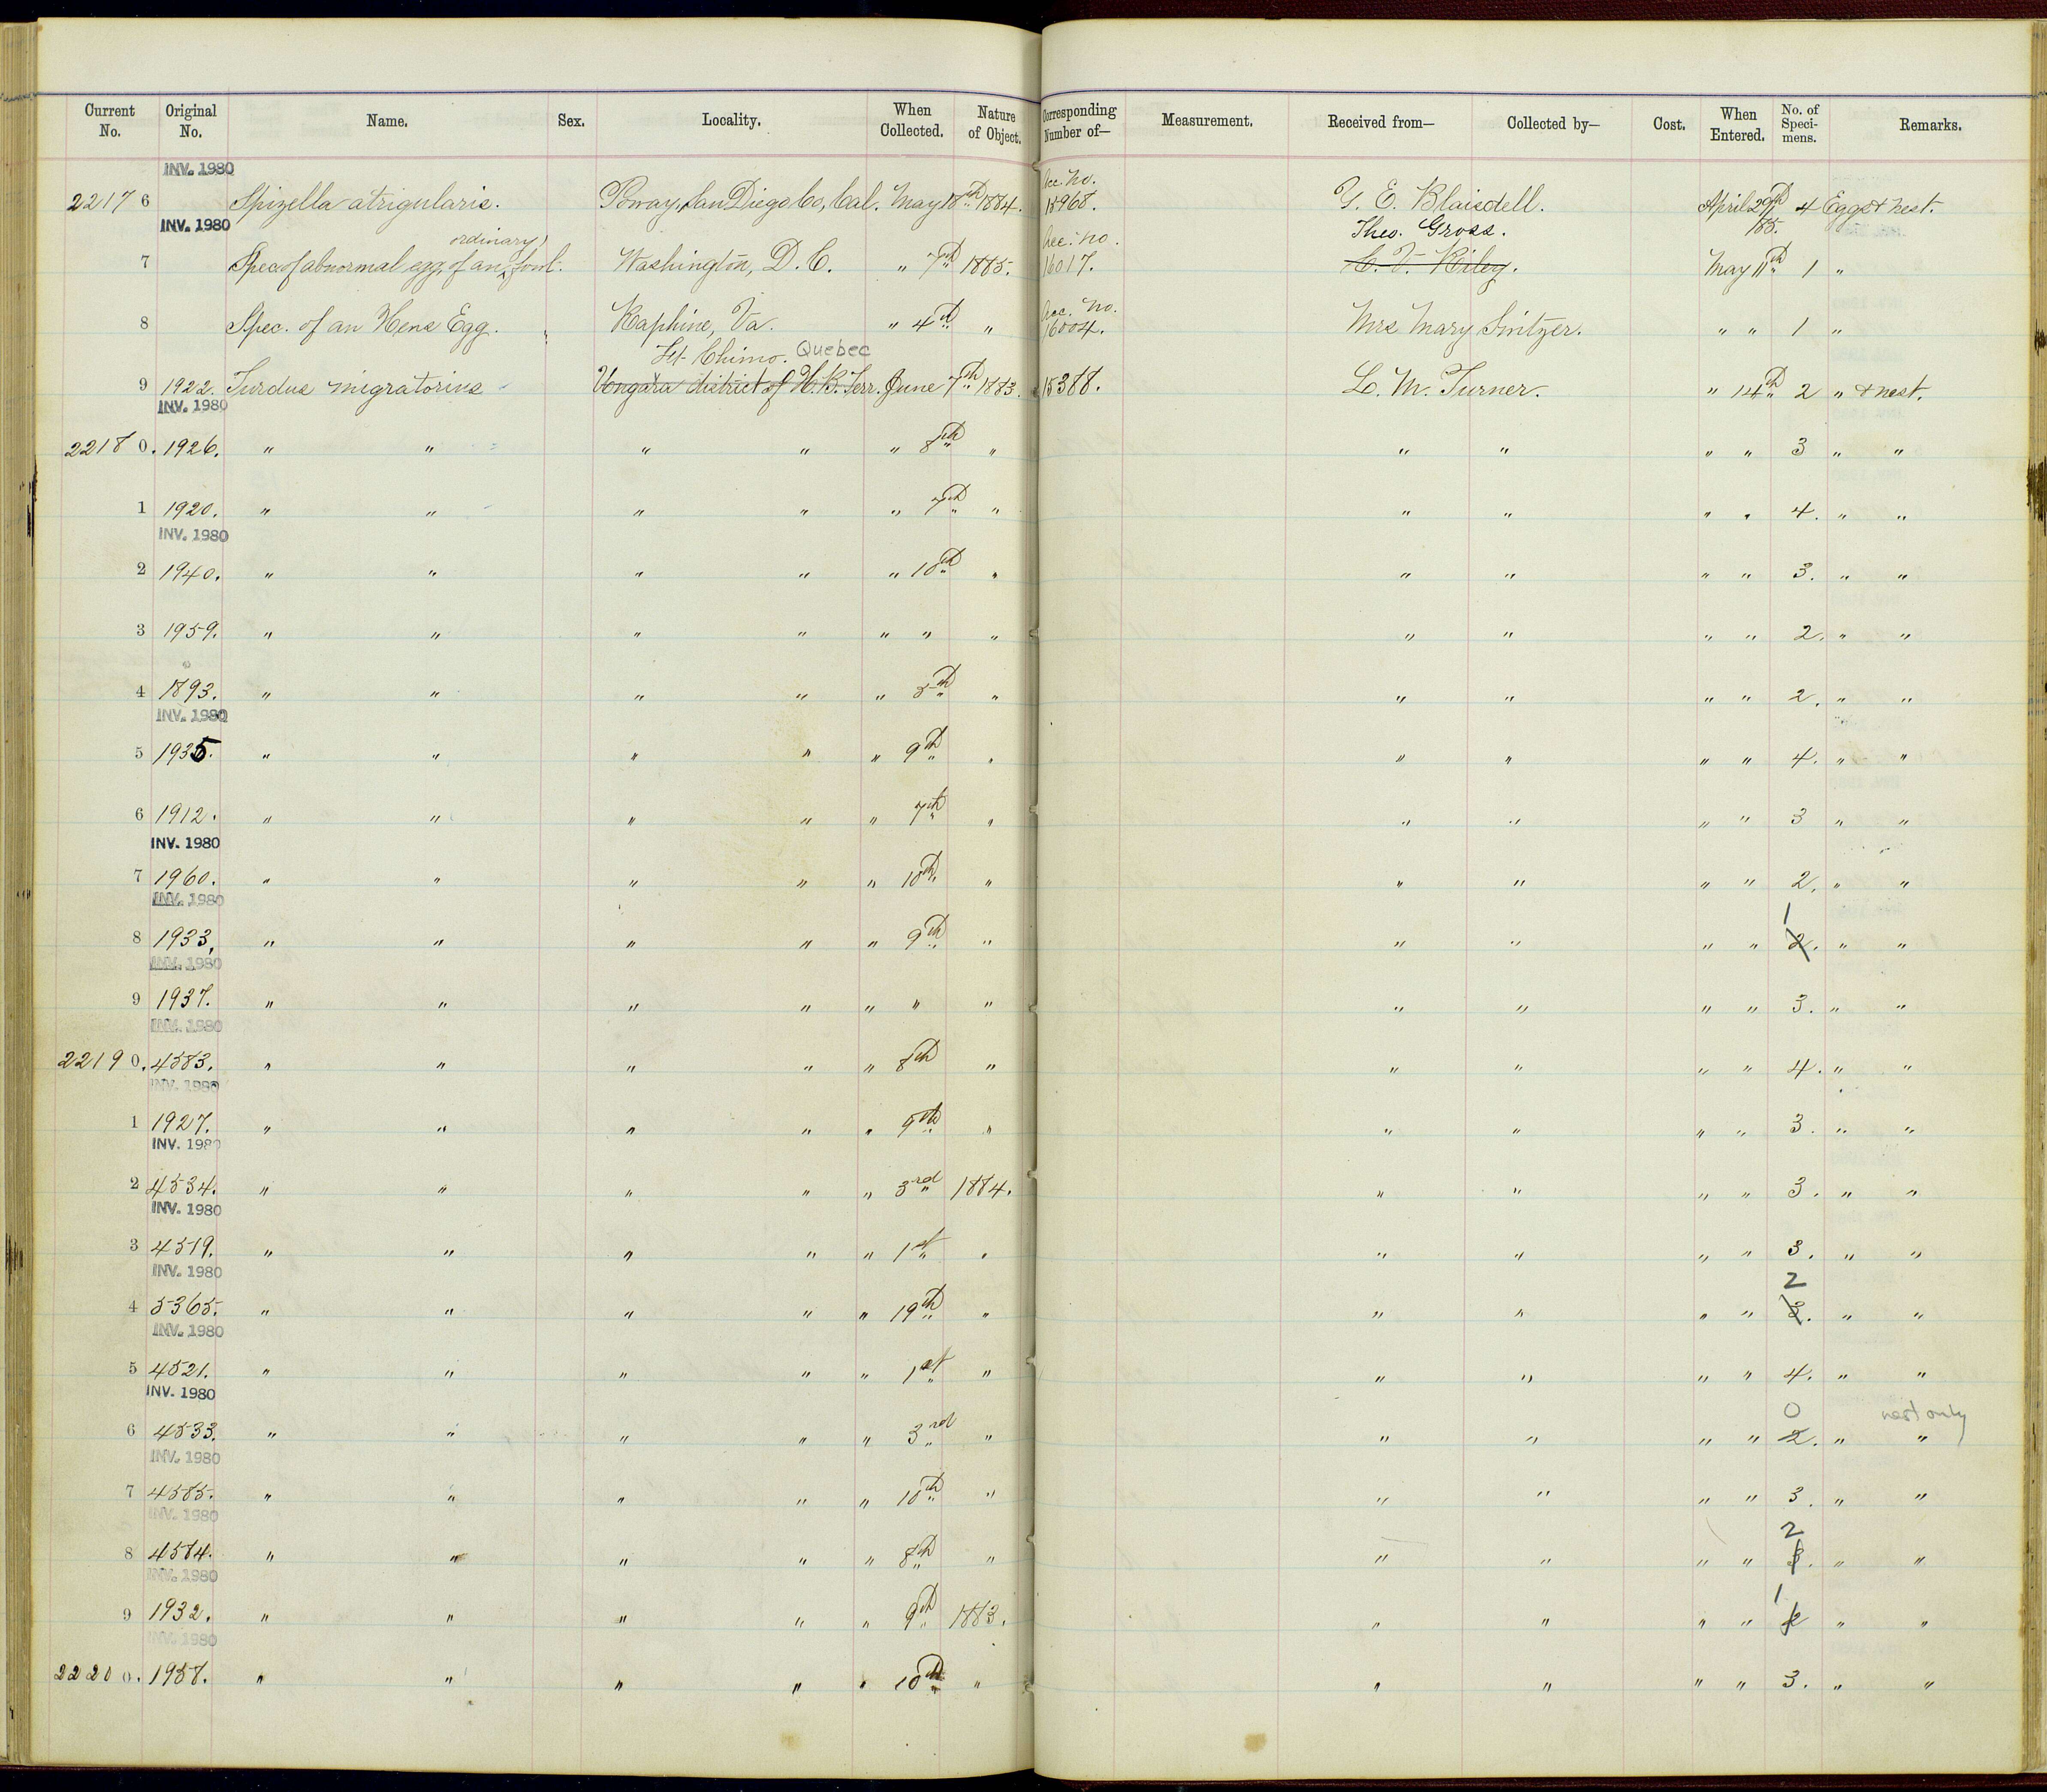 Current No. Original No. Name. Sex. Locality. When Collected. Nature of Object. Corresponding Number of— Measurement. Received from— Collected by— Cost. When Entered. No. of Speci-mens. Remarks.
INV. 1980
Acc. No.
2217 6 Spizella atrigularis. Poway, San Diego Co, Cal. May 18th 1884. 15968. F. E. Blaisdell. April 29th /85. 4 Eggs & nest.
INV. 1980 ordinary Acc. no. Theo. Gross.
7 Spec of abnormal egg, of an fowl. Washington, D. C. " 7th 1885. 16017. C. V. Riley. May 11th 1 "
Acc. No.
8 Spec. of an Hens Egg. Raphine, Va. " 4th " 16004. Mrs Mary " " 1 "
Ft. Chimo. Quebec
9 1922. Turdus migratorius Ungava district of H. B. Terr. June 7th 1883. 15388. L. M. Turner. " 14th 2 " & nest.
INV. 1980
2218 0. 1926. " " " " " 8th " " " " " 3 " "
1 1920. " " " " " 7th " " " " " 4. " "
INV. 1980
2 1940. " " " " " 10th " " " " " 3. " "
3 1959. " " " " " " " " " " " 2. " "
4 1893. " " " " " 5th " " " " " 2. " "
INV. 1980
5 1935. " " " " " 9th " " " " " 4. " "
6 1912. " " " " " 7th " " " " " 3 " "
INV. 1980
7 1960. " " " " " 10th " " " " " 2. " "
INV. 1980 1
8 1933. " " " " " 9th " " " " " 2. " "
INV. 1980
9 1937. " " " " " " " " " " " 3. " "
INV. 1980
2219 0. 4583. " " " " " 8th " " " " " 4. " "
INV. 1980
1 1927. " " " " " 9th " " " " " 3. " "
INV. 1980
2 4534. " " " " " 3rd 1884. " " " " 3. " "
INV. 1980
3 4519. " " " " " 1st " " " " " 3. " "
INV. 1980 2
4 5365. " " " " " 19th " " " " " 3. " "
INV. 1980
5 4521. " " " " " 1st " " " " " 4. " "
INV. 1980 0 nest only
6 4533. " " " " " 3rd " " " " " 2. " "
INV. 1980
7 4585. " " " " " 10th " " " " " 3. " "
INV. 1980 2
8 4584. " " " " " 8th " " " " " 3. " "
INV. 1980 1
9 1932. " " " " " 9th 1883. " " " " 2 " "
INV. 1980
2220 0. 1958. " " " " " 10th " " " " " 3. " "